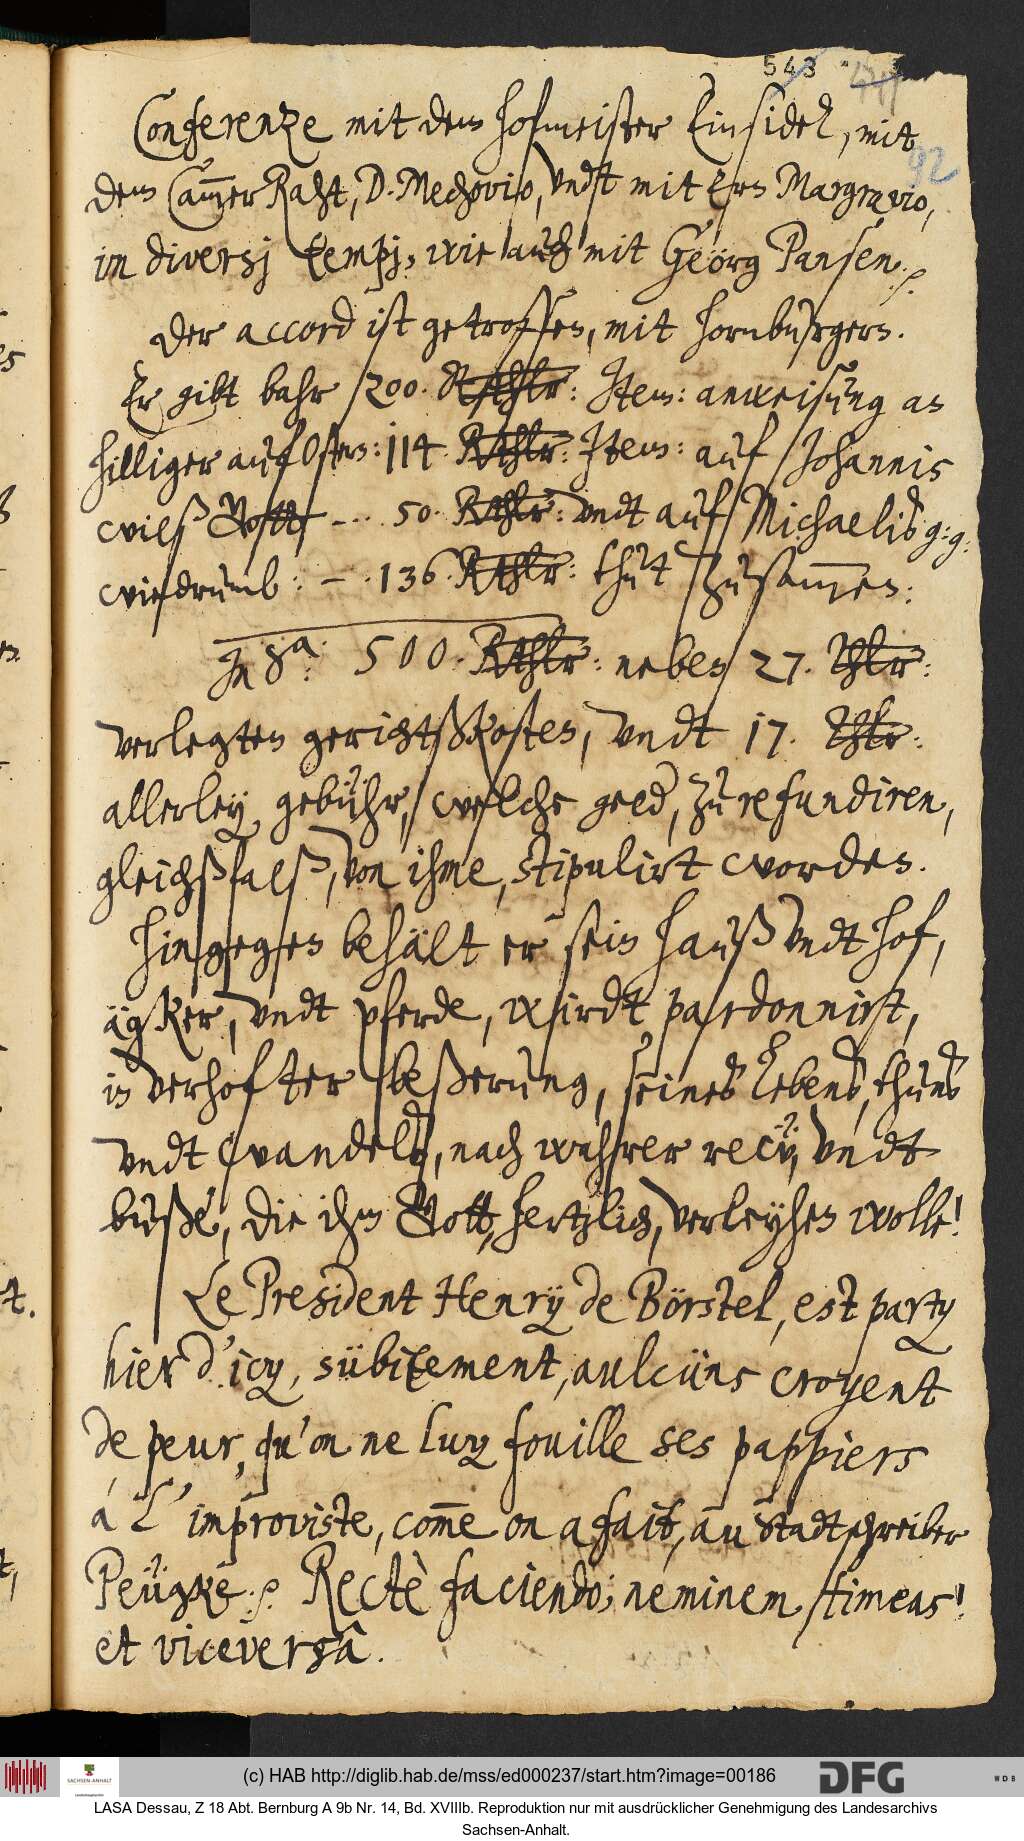 543
92
Conferentze mit dem hofmeister Einsidel, mit
dem CammerRaht, D. Mechovio, vndt mit Ern Margravio,
in diversj tempj, wie auch mit Geörg Pansen. /.
Der accord ist getroffen, mit hornburgern.
Er gibt bahr 200. Rthlr: Item: anweisung an
hilliger auf Ostern: 114. Rthlr: Item: auf Johannis
wils Gott -... 50. Rthlr: vndt auf Michaelis g: g:
wiedrumb: - . 136. Rthlr: thut zusammen:
In Sa: 500. Rthlr: neben 27. Thlr:
verlegten gerichtßkosten, vndt 17. Thlr:
allerley gebühr, welche geld, zu refundiren,
gleichßfalß, von ihme, stipulirt worden.
Hingegen behält er sein hauß vndt hof,
ägker, vndt pferde, wirdt pardonnirt,
in verhofter beßerung, seines lebens, thuns
vndt wandels, nach wahrer rew, vndt
buße, die ihm Gott, hertzlich, verleyhen wolle!
Le President Henry de Börstel, est party
hier d'icy, sübitement, aulcüns croyent
de peur, qu'on ne luy fouille ses pappiers
á L'improviste, come on a fait, au Stadtschreiber
Peügke. /. Rectè faciendo; neminem timeas!
et viceversâ.
(c) HAB http://diglib.hab.de/mss/ed000237/start.htm?image=00186
SACHSEN-ANHALT
DFG
WDB
LASA Dessau, Z 18 Abt. Bernburg A 9b Nr. 14, Bd. XVIIIb. Reproduktion nur mit ausdrücklicher Genehmigung des Landesarchivs
Sachsen-Anhalt.